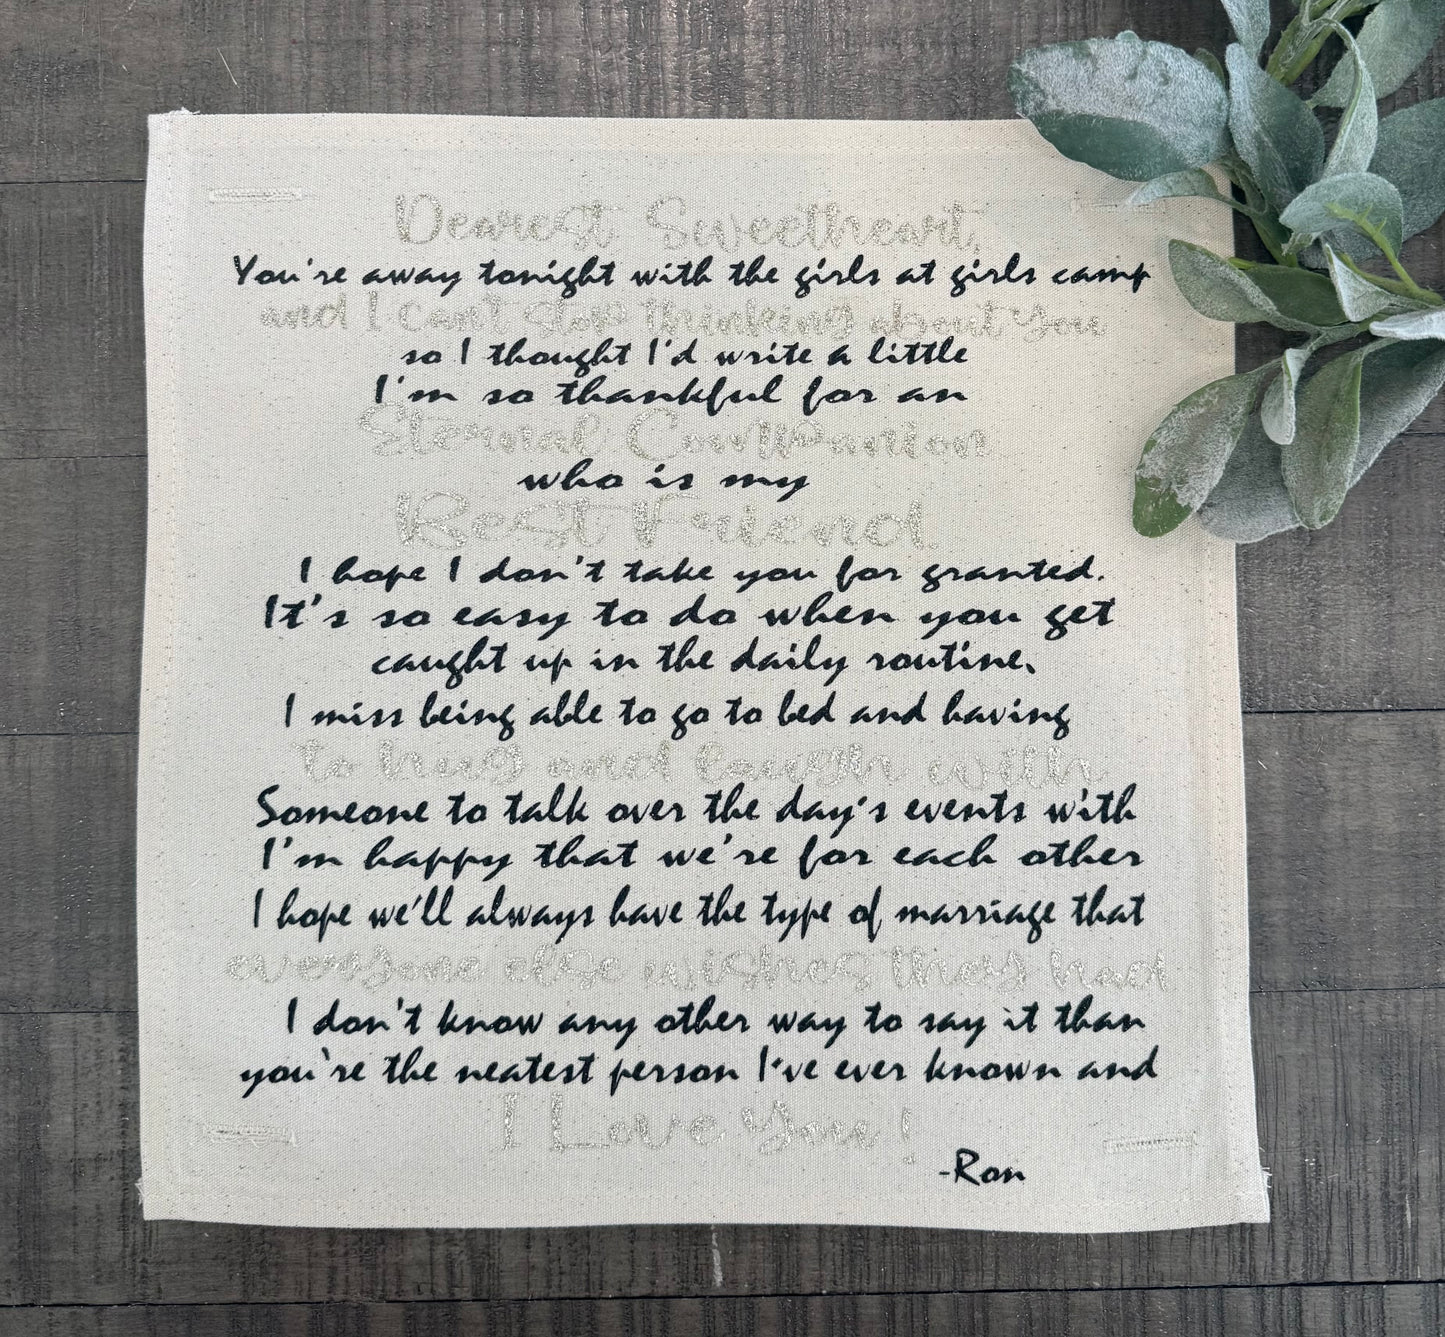 Dearest Sweetheart,
You're away tonight with the girls at girls camp
and I can't stop thinking about you
so I thought I'd write a little
I'm so thankful for an
Eternal Companion
who is my
Best Friend.
I hope I don't take you for granted.
It's so easy to do when you get
caught up in the daily routine.
I miss being able to go to bed and having
to hug and laugh with
Someone to talk over the day's events with
I'm happy that we're for each other
I hope we'll always have the type of marriage that
everyone else wishes they had
I don't know any other way to say it than
you're the neatest person I've ever known and
I Love You!
-Ron